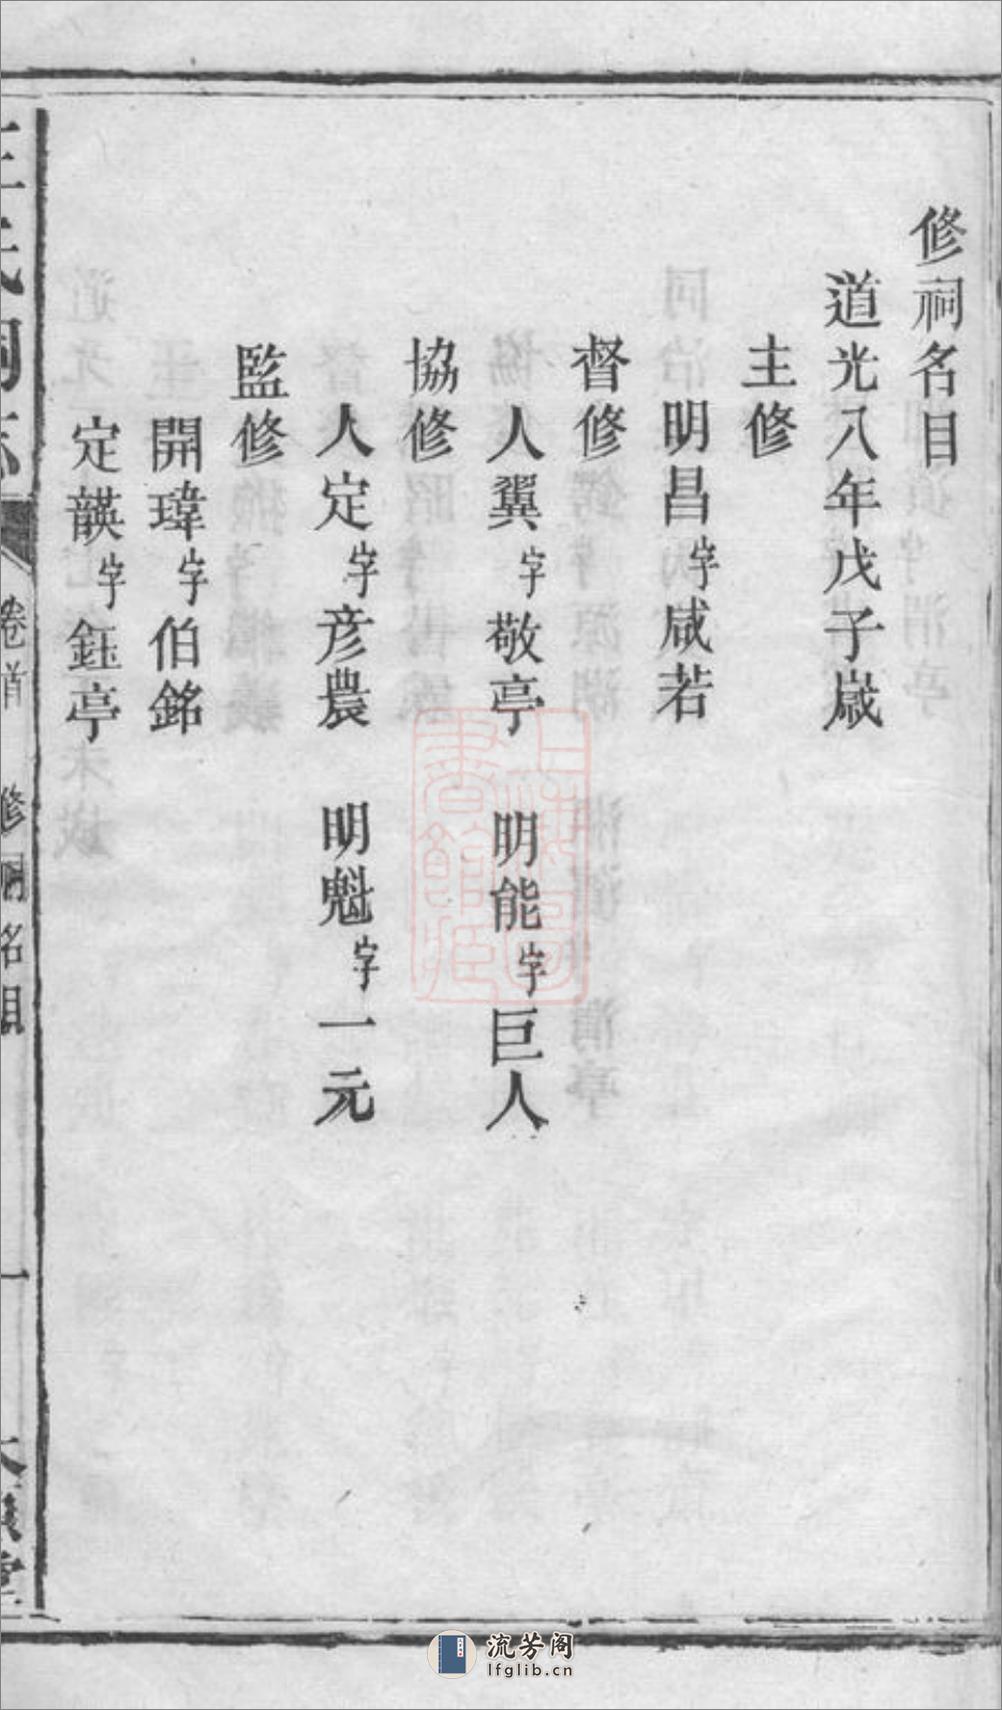 修祠名目
道光八年戊子歲
主修
明昌字咸若
督修
人翼字敬亭 明能字巨人
協修
人定字彥農 明魁字一元
監修
開瑋字伯銘
定韺字鈺亭
王氏祠志 卷首 修祠名目 一
上海圖書館藏
流芳阁
lfglib.cn